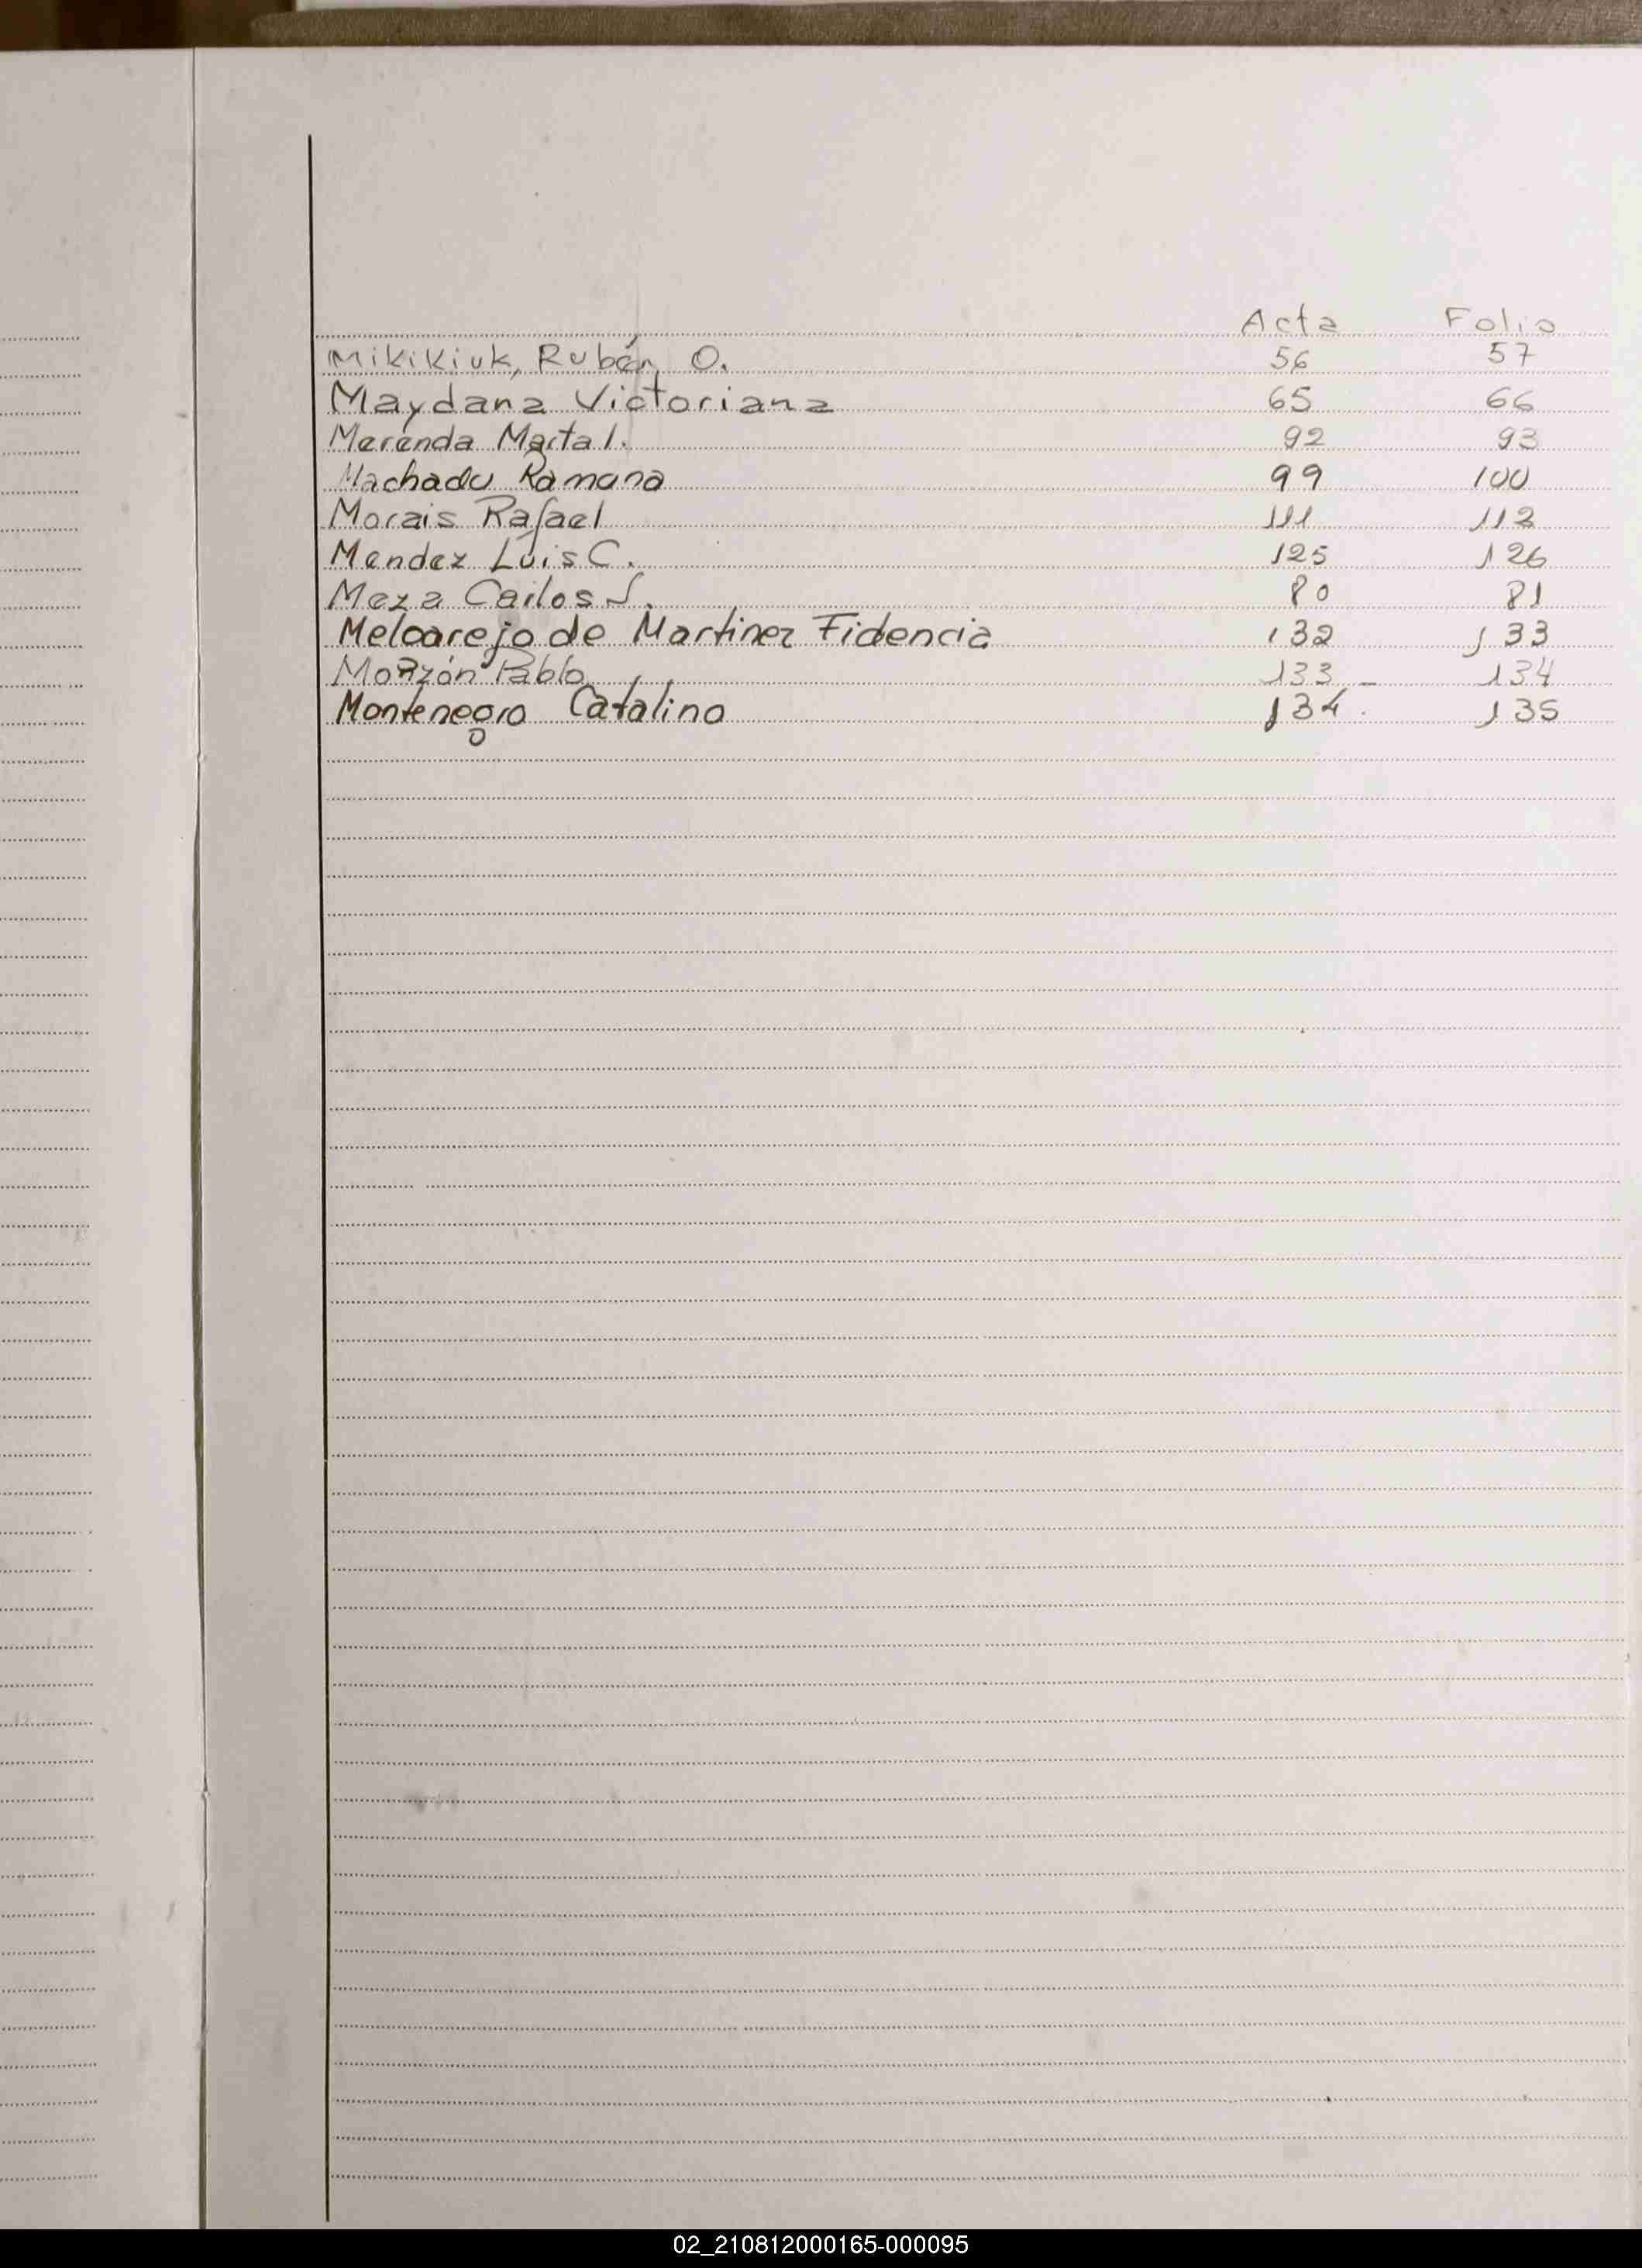 Acta Folio
Mikikiuk, Rubén O. 56 57
Maydana Victoriana 65 66
Merenda Marta I. 92 93
Machado Ramona 99 100
Morais Rafael 111 112
Mendez Luis C. 125 126
Meza Carlos S. 80 81
Meloarejo de Martinez Fidencia 132 133
Monzón Pablo 133 134
Montenegro Catalino 134 135
02_210812000165-000095